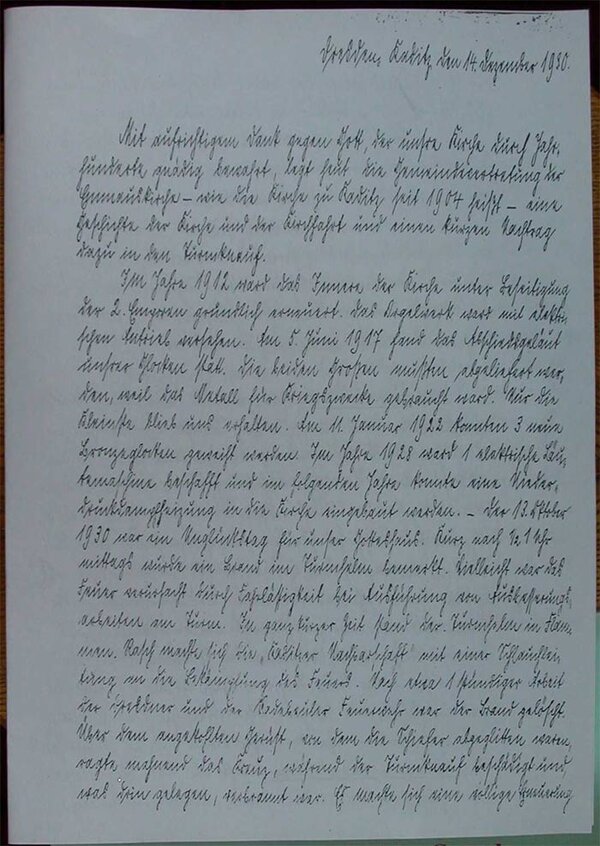 Dresden-Kaditz den 14. Dezember 1930.
Mit aufrichtigem Dank gegen Gott, der unsre Kirche durch Jahr-
hunderte gnädig bewahrt, legt heut die Gemeindevertretung der
Emmauskirche – wie die Kirche zu Kaditz seit 1904 heißt – eine
Geschichte der Kirche und der Kirchfahrt und einen kurzen Nachtrag
dazu in den Turmknauf.
Im Jahre 1912 ward das Innere der Kirche unter Beseitigung
der 2. Emporen gründlich erneuert. Das Orgelwerk ward mit elektri-
schen Antrieb versehen. Am 5. Juni 1917 fand das Abschiedsgeläut
unsrer Glocken statt. Die beiden Großen mußten abgeliefert wer-
den, weil das Metall für Kriegszwecke gebraucht ward. Nur die
Kleinste blieb uns erhalten. Am 11. Januar 1922 konnten 3 neue
Bronzeglocken geweiht werden. Im Jahre 1928 ward 1 elektrische Läu-
temaschine beschafft und im folgenden Jahre konnte eine Nieder-
druckdampfheizung in die Kirche eingebaut werden. – Der 13. Oktober
1930 war ein Unglückstag für unser Gotteshaus. Kurz nach ½1 Uhr
mittags wurde ein Brand im Turmhelm bemerkt. Vielleicht war das
Feuer verursacht durch Fahrläßigkeit bei Ausführung von Ausbesserungs-
arbeiten am Turm. In ganz kurzer Zeit stand der Turmhelm in Flam-
men. Rasch machte sich die „Kaditzer Nachbarschaft" mit einer Schlauchlei-
tung an die Bekämpfung des Feuers. Nach etwa 1 stündiger Arbeit
der Dresdner und der Radebeuler Feuerwehr war der Brand gelöscht.
Über dem angekohlten Gerüst, von dem die Schiefer abgeglitten waren,
ragte mahnend das Kreuz, während der Turmknauf beschädigt und,
was drin gelegen, verbrannt war. Es machte sich eine völlige Erneuerung